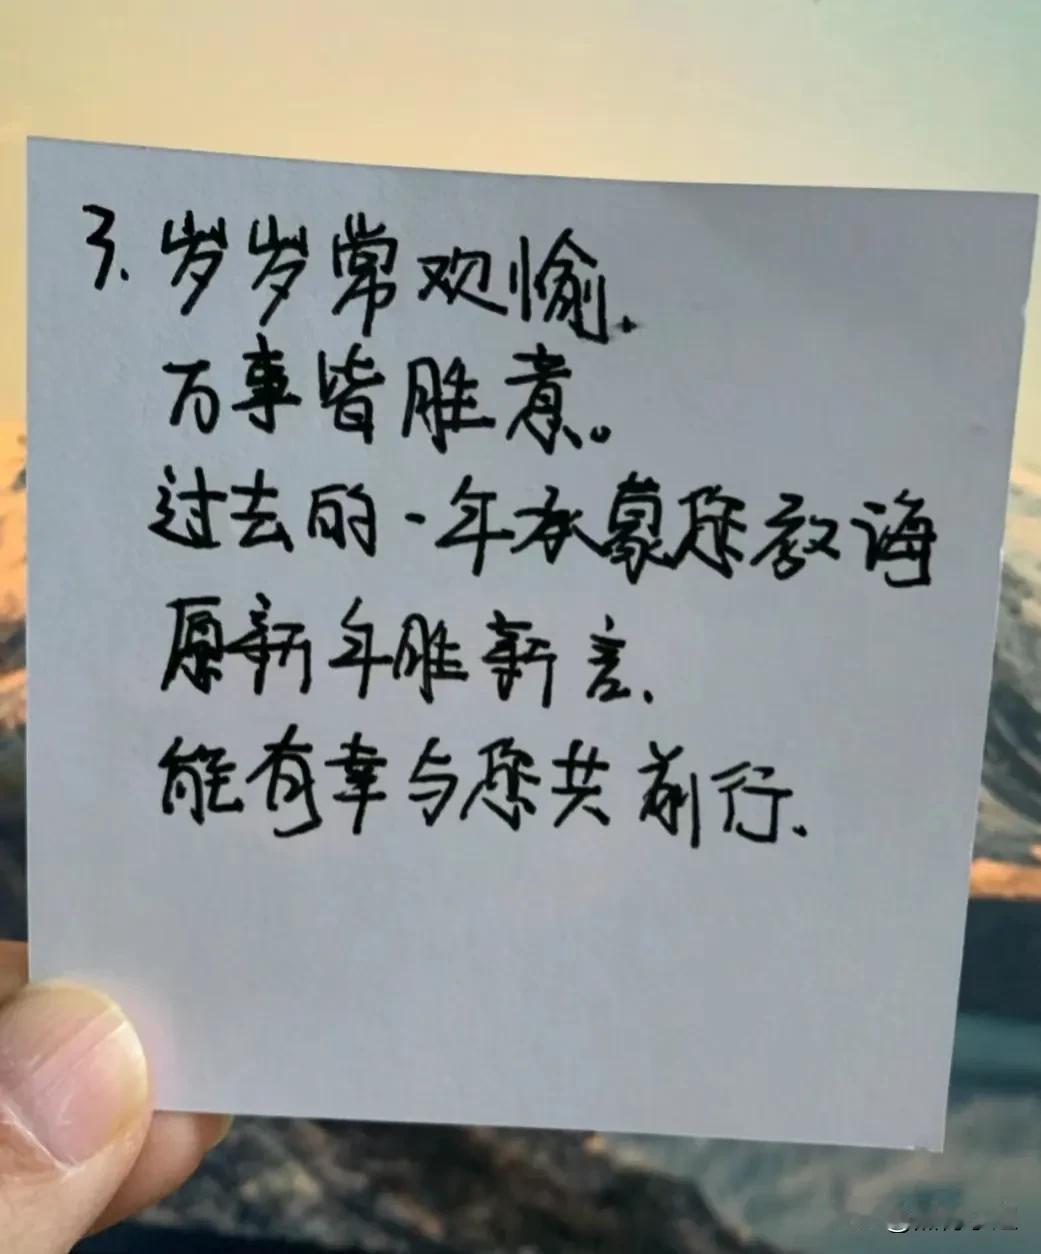 3. 岁岁常欢愉.
万事皆胜意。
过去的一年承蒙您教诲
愿新年胜新言.
能有幸与您共前行.